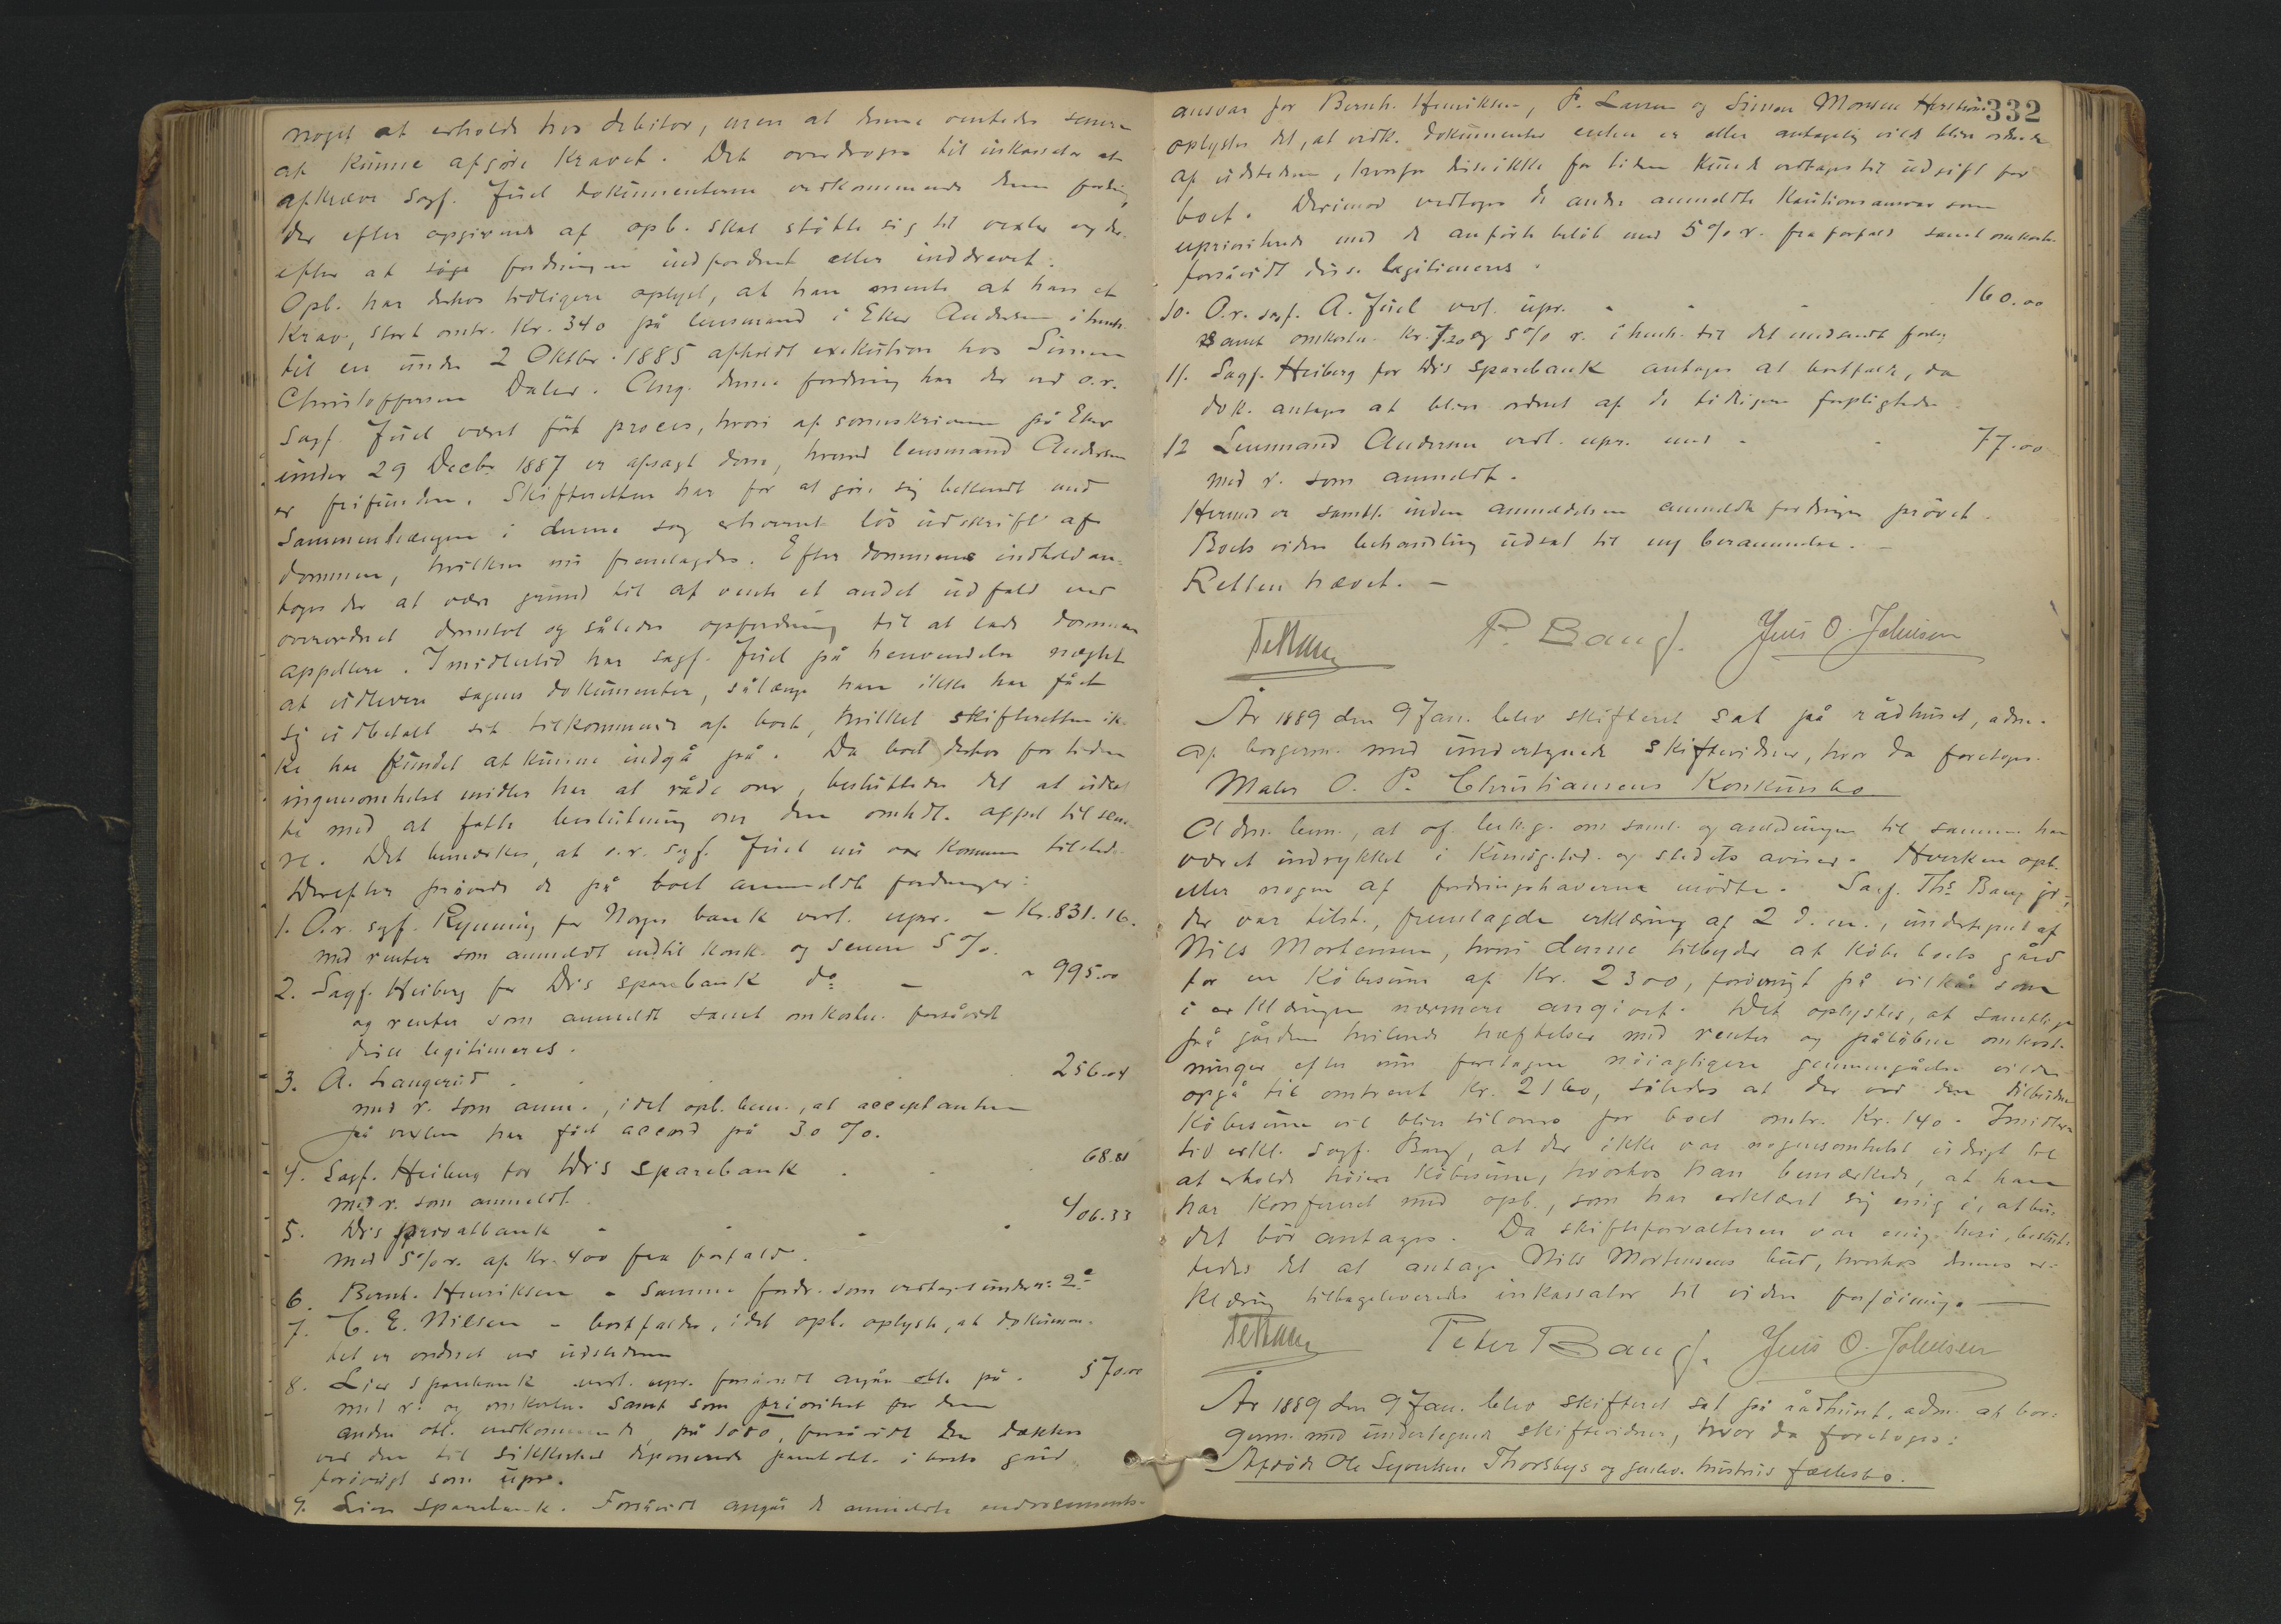 noget at erholde hos debitor, men at denne ventedes senere
at kunne afgjøre kravet. Det overdroges til inkassator at
afkræve sagf. Juel dokumenterne vedkommende denne fordring,
der efter opgivende af opb. skal støtte sig til vexler og der-
efter at søge fordringen indfordret eller inddrevet.
Opb. har derhos tidligere oplyst, at han mente at have et
krav, stort omtr. Kr. 340 på lensmand i Eker Andersen i henh.
til en under 2 Oktbr. 1885 afholdt exekution hos Simen
Christoffersen Daler. Ang. denne fordring har der ved o.r.
sagf. Juel været ført proces, hvori af sorenskriveren på Eker
under 29 Decbr 1887 er afsagt dom, hvorved lensmand Andersen
er frifunden. Skifteretten har for at gjøre sig bekendt med
sammenhængen i denne sag erhvervet løs udskrift af
dommen, hvilken nu fremlagdes. Efter dommens indhold an-
toges der at være grund til at vente et andet udfald ved
overordnet domstol og således opfordring til at lade dommen
appellere. Imidlertid har sagf. Juel på henvendelse nægtet
at udlevere sagens dokumenter, sålænge han ikke har fået
sig udbetalt sit tilkommende af boet, hvilket skifteretten ik-
ke har fundet at kunne indgå på. Da boet derhos for tiden
ingensomhelst midler har at råde over, besluttedes det at udsæt
te med at fatte beslutning om den omhdl. appel til sene-
re. Det bemærkes, at o.r. sagf. Juel nu var kommen tilstede.
Derefter prøvedes de på boet anmeldte fordringer:
1. O.r. sagf. Rynning for Norges bank vedt. upr. - Kr. 831.16.
med renter som anmeldt indtil konk. og senere 5%.
2. Sagf. Heiberg for D's sparebank do - " 995.00
og renter som anmeldt samt omkostn. forsåvidt
disse legitimeres.
3. A. Langerud . . . 256.04
med r. som anm., idet opb. bem., at acceptanten
på vexlen har fået accord på 30%.
4. Sagf. Heiberg for D's sparebank . . . 68.81
med r. som anmeldt
5. D's privatbank - - - 406.33
med 5% r. af Kr. 400 fra forfald.
6. Bernh. Henriksen - samme fordr. som vedtaget under n: 2
7. C. E. Nilsen - bortfaldes, idet opb. oplyste, at dokumen-
tet er ordnet ved udstederen
8. Lier sparebank vedt. upr. forsåvidt angår obl. på . 570.00
med r. og omkostn. samt som prioritet for den
anden obl. vedkommende, på 1000, forsåvidt den dækkes
ved den til sikkerhed deponerede panteobl. i boets gård,
forøvrigt som upr.
9. Lier sparebank. Forsåvidt angår de anmeldte endossements-
332
ansvar for Bernh. Henriksen, P. Larsen og Simen Monsen
oplystes det, at vedk. dokumenter enten er eller antagelig vilde blive ordnede
af udstederne, hvorfor disse ikke for tiden kunde vedtages til udgift for
boet. Derimod vedtoges de andre anmeldte kautionsansvar som
uprioriterede med de anførte beløb med 5% r. fra forfald samt omkostn.
forsåvidt disse legitimeres.
10. O.r. sagf. A. Juel vedt. upr. - - - 160.00
samt omkostn. Kr. 7.20 og 5% r. i henh. til det
11. Sagf. Heiberg for D's sparebank antages at bortfalde, da
dok. antages at blive ordnet af de tidligere forpligtede
12 Lensmand Andersen vedt. upr. med - - 77.00
med r. som anmeldt.
Hermed er samtl. inden anmeldelsen anmeldte fordringer prøvet.
Boets videre behandling udsat til ny berammelse. -
Retten hævet. -
P. Baugf. Juls O. Johnsen
År 1889 den 9 Jan. blev skifteret sat på rådhuset, adm.
af borgerm. med undertegnede skiftevidner, hvor da foretoges.
Maler O. P. Christiansens Konkursbo
Adm. bem., at of. bek.g. om saml. og anledningen til samme har
været indrykket i Kundg.tid. og stedets aviser. Hverken opb.
eller nogen af fordringshaverne mødte. Sagf. Ths Baug jr.,
der var tilst., fremlagde erklæring af 2 d.m., undertegnet af
Nils Mortensen, hvori denne tilbyder at købe boets gård
for en købesum af Kr. 2300, forøvrigt på vilkår som
i erklæringen nærmere angivet. Det oplystes, at samtlige
på gården hvilende hæftelser med renter og påløbne omkost-
ninger efter nu foretagen nøiagtigere gennemgåelse vilde
opgå til omtrent Kr. 2160, således at der ved den tilbudne
købesum vil blive tilovers for boet omtr. Kr. 140. Imidler-
tid erkl. sagf. Baug, at der ikke var nogensomhelst udsigt til
at erholde høiere købesum, hvorhos han bemærkede, at han
har konfereret med opb., som har erklæret sig enig i, at bu-
det bør antages. Da skifteforvalteren var enig heri, beslut-
tedes det at antage Nils Mortensens bud, hvorhos dennes er-
klæring tilbageleveredes inkassator til videre forføining. —
Peter Baugf. Juls O. Johnsen
År 1889 den 9 Jan. blev skifteret sat på rådhuset, adm. af bor-
germ. med undertegnede skiftevidner, hvor da foretoges:
Afdøde Ole Syvertsen Thorsbys og genlev. hustrus fællesbo.